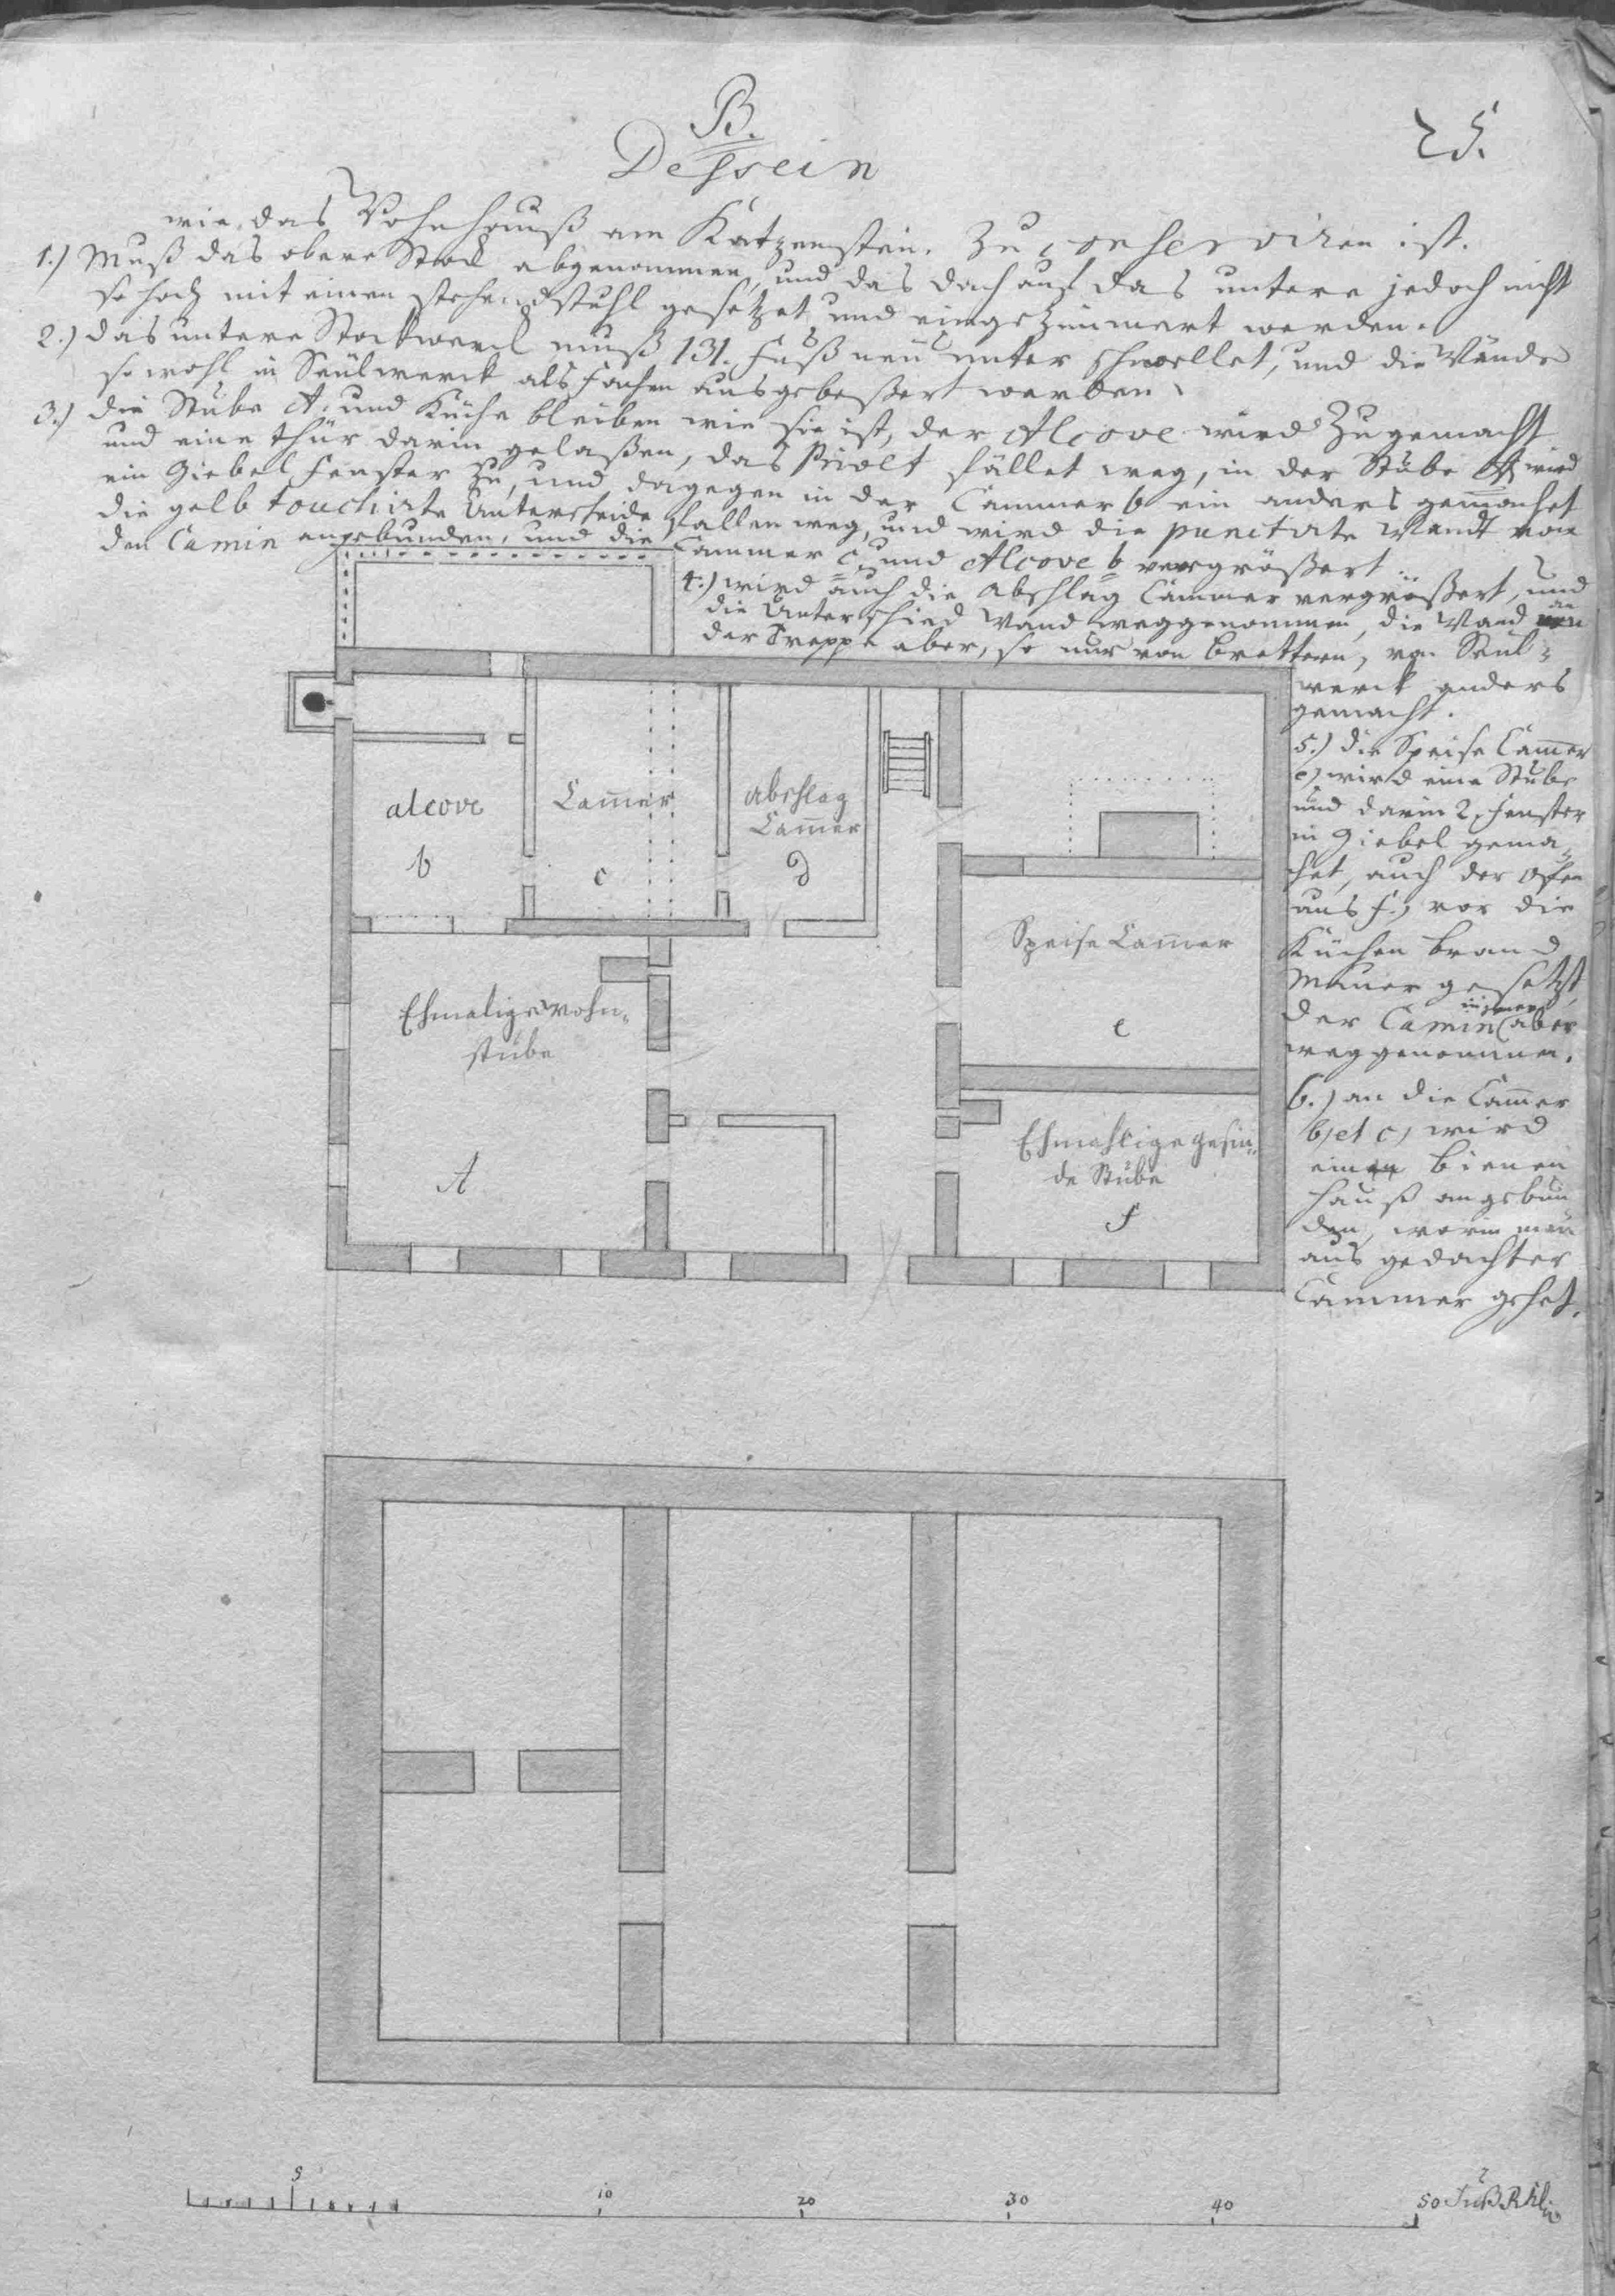 B.
25.
Dessein
wie das Wohnhauß am Katzenstein. Zu conserviren ist.
1.) Muß das obere Stock abgenommen, und das dach auf das untere jedoch nicht
so hoch mit einen stehendstuhl gesetzet und eingezimmert werden.
2.) das untere Stockwerck muß 131. Fuß neü unter schwellet, und die Wände
so wohl in Seülwerck als Fachen ausgebeßert werden.
3.) die Stube A. und Küche bleiben wie sie ist, der Alcove wird Zugemacht
und eine thür darin gelaßen, das Privet fället weg, in der Stube A wird
ein Giebel Fenster zu, und dagegen in der Cammer b ein anders gemachet
die gelb touchirte Unterscheide fallen weg, und wird die punctirte Wandt von
den Camin angebunden, und die Cammer c, und Alcove b vergrößert.
4.) wird auch die Abschlag Cammer vergrößert, und
die Unterschied Wand weggenommen, die Wand an
der Treppe aber, so nur von Brettern, von Seul=
werck anders
gemacht.
5.) die Speise Cam̄er
e, wird eine Stube
und darin 2. Fenster
in Giebel gema=
chet, auch der Ofen
aus f., vor die
Küchen brand
Mauer gesetzt,
der Camin aber
weggenommen.
6.) an die Cam̄er
b, et c, wird
ein Bienen
hauß angebun
den, worin man
aus gedachter
Cammer gehet.
alcove
b
Cam̄er
c
abschlag
Cam̄er
d
Speise Cam̄er
e
Ehmalige wohn=
stube
A
Ehmahlige gesin=
de Stube
f
5
10
20
30
40
50 Fuß Rhl